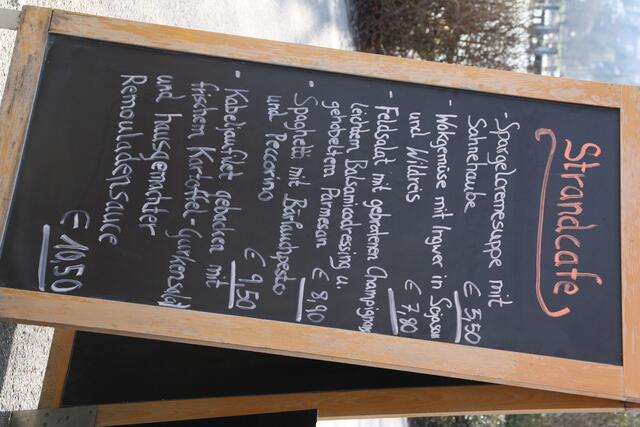 Strandcafe
- Spargelcremesuppe mit
Sahnehaube € 5,50
- Wokgemüse mit Ingwer in Sojasau
und Wildreis € 7,80
- Feldsalat mit gebratenen Champignons
leichtem Balsamicodressing u.
gehobeltem Parmesan € 8,90
- Spaghetti mit Bärlauchpesto
und Peccorino € 9,50
- Kabeljaufilet gebacken mit
frischem Kartoffel-Gurkensalat
und hausgemachter
Remouladensauce € 10,50